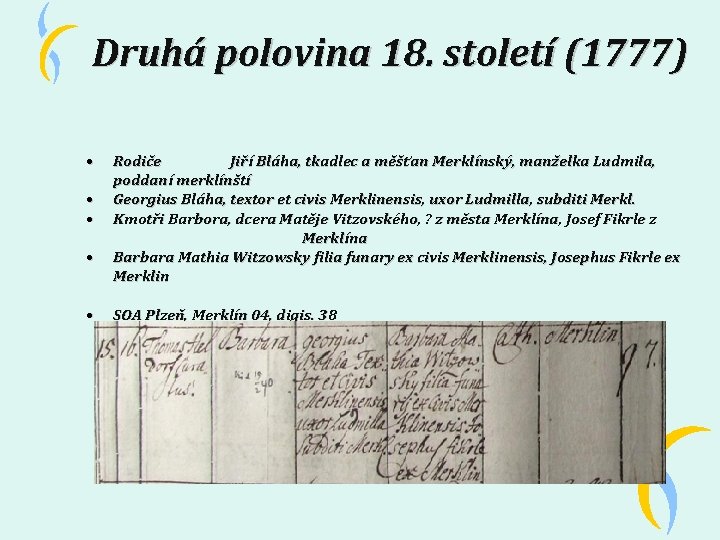 Druhá polovina 18. století (1777)
• Rodiče Jiří Bláha, tkadlec a měšťan Merklínský, manželka Ludmila,
poddaní merklínští
• Georgius Bláha, textor et civis Merklinensis, uxor Ludmilla, subditi Merkl.
• Kmotři Barbora, dcera Matěje Vitzovského, ? z města Merklína, Josef Fikrle z
Merklína
• Barbara Mathia Witzowsky filia funary ex civis Merklinensis, Josephus Fikrle ex
Merklin
• SOA Plzeň, Merklín 04, digis. 38
15. 16. Thomas Hel
dorf Cura
tus.
Barbara.
georgius
Blaha Tex
tor et Civis
Merklinensis
uxor Ludmilla
Subditi Merkl
Barbara Ma
thia Witzow
sky filia funa
rij ex Civis Mer
klinensis Jo
sephus fikrle
ex Merklin
Cath. Merklin.
97.